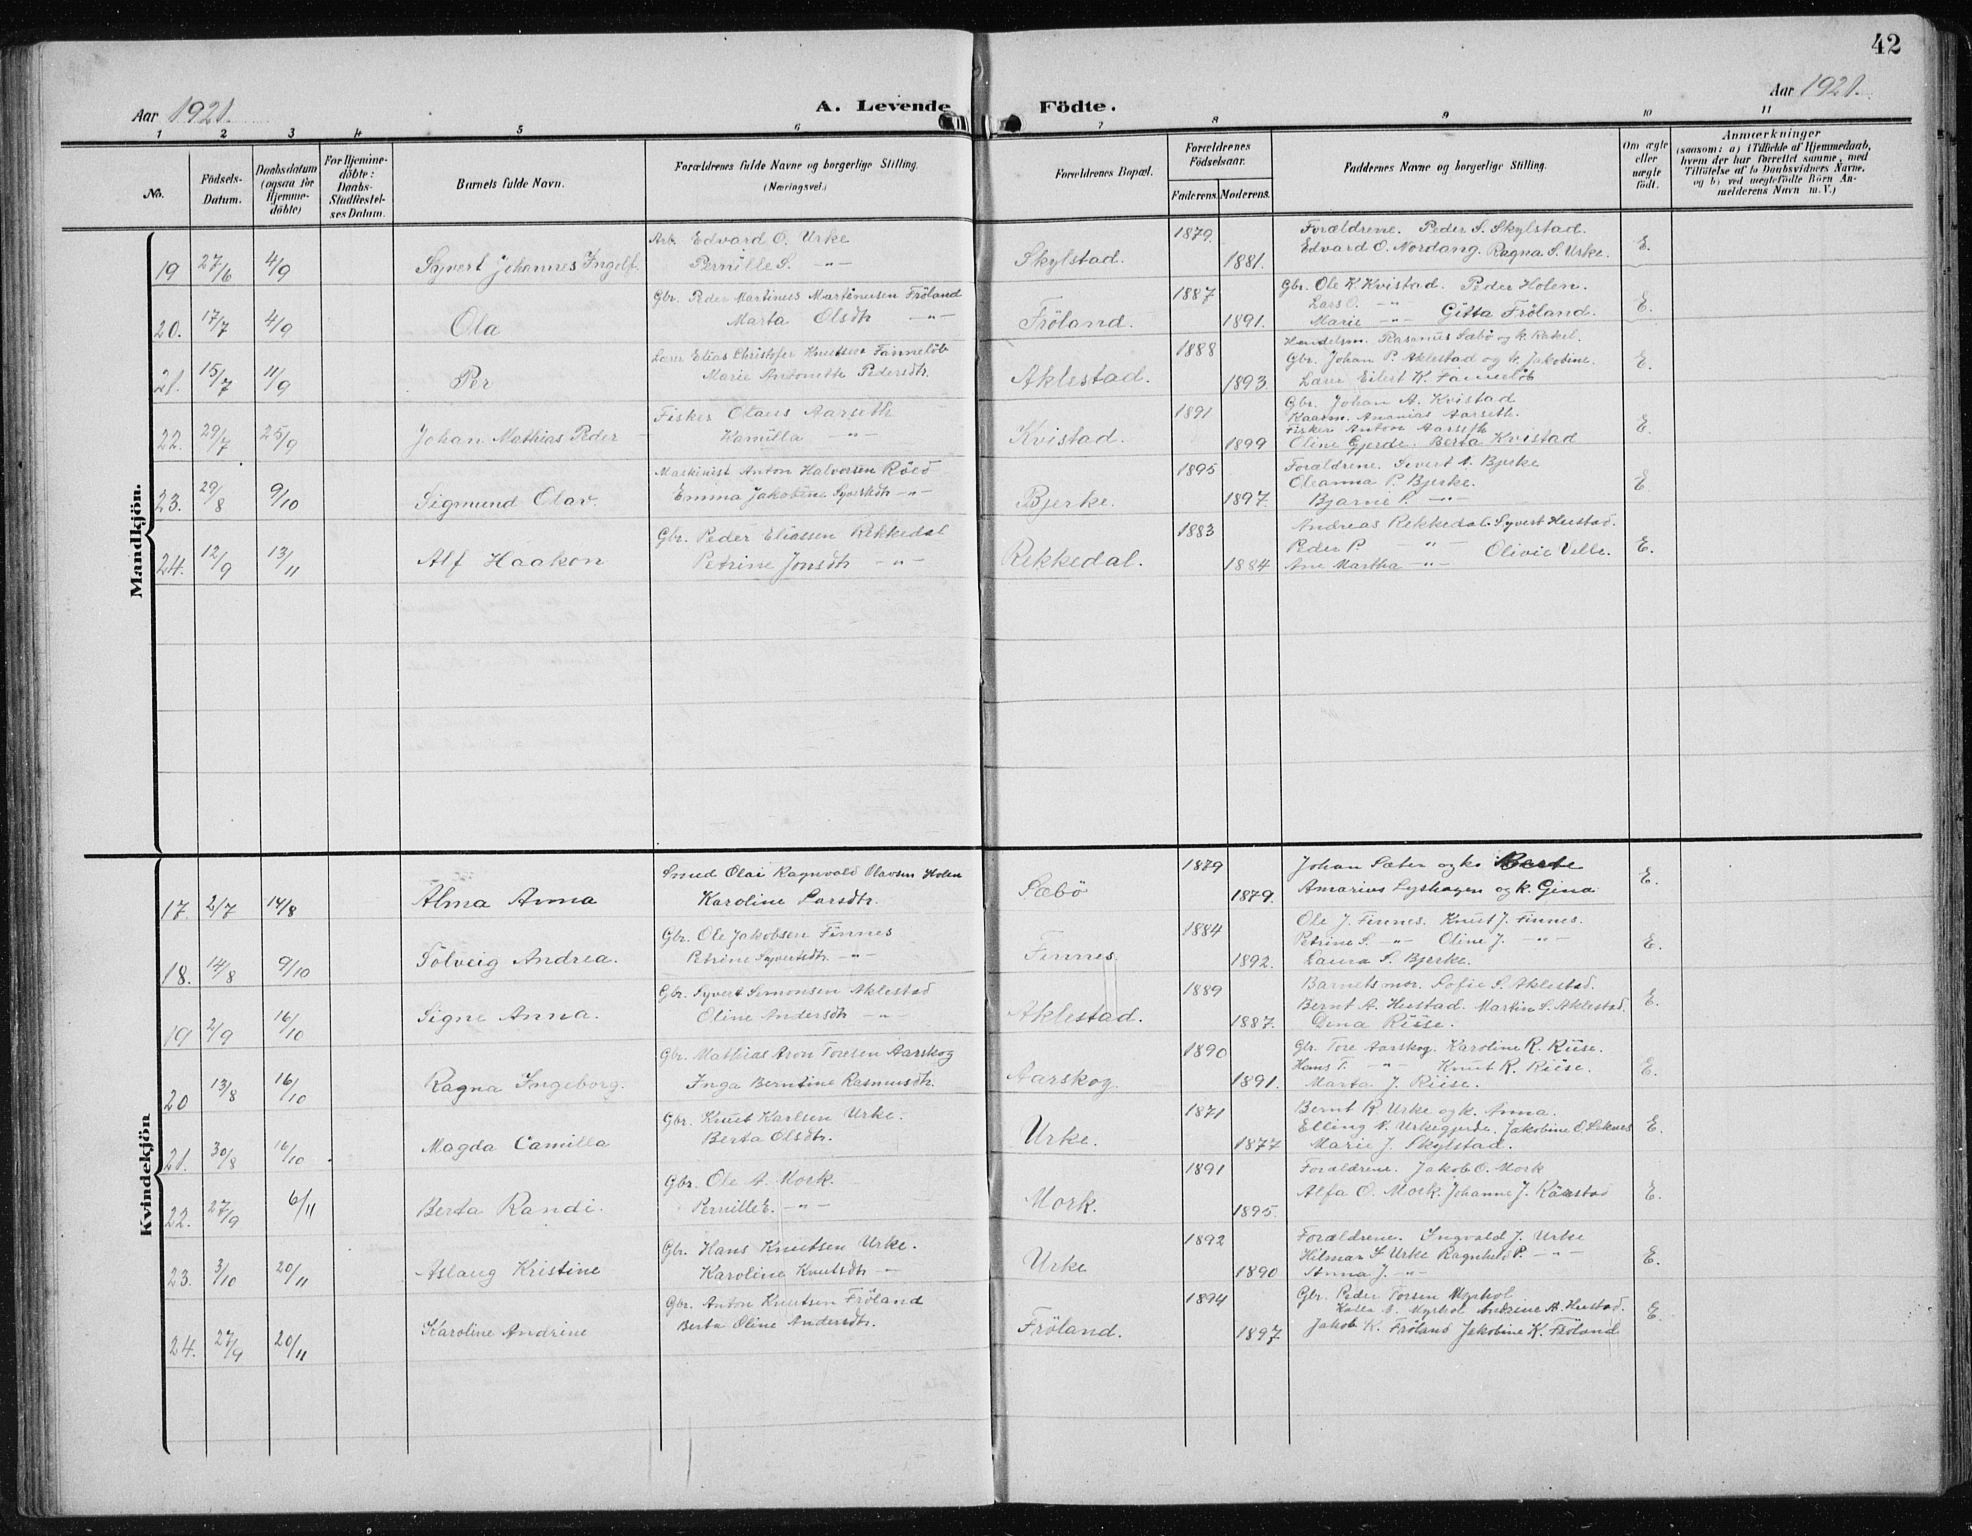 42
Aar 1921.
A. Levende Födte.
Aar 1921.
1 2 3 4 5 6 7 8 9 10 11
No.
Födsels-Datum.
Daabsdatum (ogsaa for Hjemme-döbte)
For Hjemme-döbte: Daabs-Stadfæstel-ses Datum.
Barnets fulde Navn.
Forældrenes fulde Navne og borgerlige Stilling. (Næringsvei.)
Forældrenes Bopæl.
Forældrenes Födselsaar.
Faderens. Moderens.
Faddernes Navne og borgerlige Stilling.
Om ægte eller uægte födt.
Anmærkninger (saasom: a) i Tilfælde af Hjemmedaab, hvem der har forrettet samme, med Tilföielse af to Daabsvidners Navne, og b) ved uægtefödte Börn An-melderens Navn m. V.)
Mandkjön.
19 27/6 4/9 Syvert Johannes Ingolf. Arb. Edvard O. Urke Pernille S. -"- Skylstad. 1879. 1881. Forældrene. Peder S. Skylstad. Edvard O. Nordang. Ragna S. Urke. E.
20. 17/7 4/9 Ola Gbr. Peder Martinus Martinusen Fröland Marta Olsdtr -"- Fröland. 1887 1891. Gbr. Ole K. Kvistad. Peder Holen. Lars O. -"- Marie -"- Gitta Fröland. E.
21. 15/7 11/9 Per Lærer Elias Christofer Knutsen Fanneløb Marie Antonette Pedersdtr. Aklestad. 1888 1893. Handelsm. Rasmus Sæbö og k. Rakel. Gbr. Johan P. Aklestad og k. Jakobine. Lærer Eilert K. Fanneløb E.
22. 29/7 25/9 Johan Mathias Peder Fisker Olaus Aarseth Kamilla -"- Kvistad. 1891 1899 Gbr. Johan A. Kvistad Kaarm. Ananias Aarseth. Fisker Anton Aarseth Oline Gjerde. Berta Kvistad E.
23. 29/8 9/10 Sigmund Olav. Maskinist Anton Halvorsen Röed Emma Jakobine Syvertsdtr -"- Bjerke. 1895 1897. Forældrene. Severt A. Bjerke Oleanna P. Bjerke. Bjarne P. -"- E
24. 12/9 13/11 Alf Haakon Gbr. Peder Eliassen Rekkedal Petrine Jonsdtr -"- Rekkedal. 1883 1884 Andreas Rekkedal. Syvert Hustad. Peder P. -"- Olivie Velle. Ane Martha -"- E.
Kvindekjön
17. 2/7 14/8 Alma Anna Smed Olai Ragnvald Olavsen Holen Karoline Larsdtr. Sæbö 1879 1879. Johan Sæter og k. Berte Amarius Lyshagen og k. Gina E.
18. 14/8 9/10 Solveig Andrea. Gbr. Ole Jakobsen Finnes Petrine Syvertsdtr. -"- Finnes 1884 1892. Ole J. Finnes. Knut J. Finnes. Petrine S. -"- Oline J. -"- Laura S. Bjerke. E.
19 2/9 16/10 Signe Anna. Gbr. Syvert Simonsen Aklestad Oline Andersdtr -"- Aklestad. 1889 1887. Barnets mor. Sofie S. Aklestad. Bernt A. Hustad. Martin S. Aklestad. Dina Riise. E.
20 13/8 16/10 Ragna Ingeborg. Gbr. Mathias Aron Toresen Aarskog Inga Berntine Rasmusdtr. Aarskog 1890 1891. Gbr. Tore Aarskog. Karoline R. Riise. Hans T. -"- Knut R. Riise. Marta J. Riise. E.
21. 30/8 16/10 Magda Camilla Gbr. Knut Karlsen Urke. Berta Olsdtr. Urke. 1871 1877 Bernt K. Urke og k. Anna. Elling N. Urkegjerde. Jakobine O. Leknes Marie J. Skylstad. E.
22. 27/9 6/11 Berta Randi. Gbr. Ole A. Mork. Pernille E. -"- Mork. 1891 1895. Forældrene. Jakob O. Mork Alfa O. Mork. Johanne J. Raastad E.
23. 3/10 20/11 Aslaug Kristine Gbr. Hans Knutsen Urke. Karoline Knutsdtr -"- Urke 1892 1890 Forældrene. Ingvald J. Urke Hilmar S. Urke Ragnhild P. -"- Anna J. -"- E.
24. 27/9 20/11 Karoline Andrine Gbr. Anton Knutsen Fröland Berta Oline Andersdtr. Fröland. 1894 1897 Gbr. Peder Torsen Myrhol Kalla A. Myrhol Andrine A. Hustad. Jakob K. Fröland Jakobine K. Fröland E.